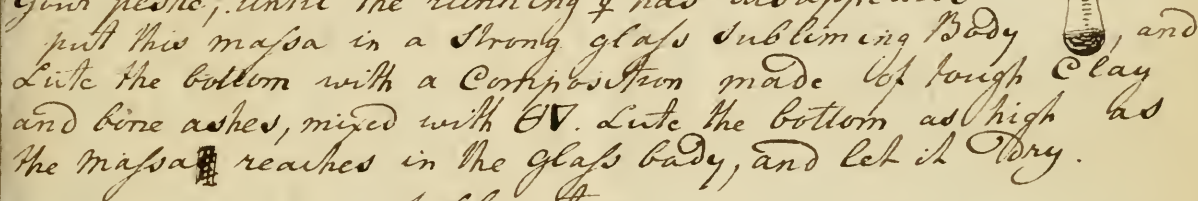 your pestle, until the running ☿ has disappeared
put this maſsa in a strong glaſs subliming Body , and
Lute the bottom with a Composition made of tough Clay
and bone ashes, mixed with 🜄. Lute the bottom as high as
the maſsa reaches in the glaſs body, and let it Dry.